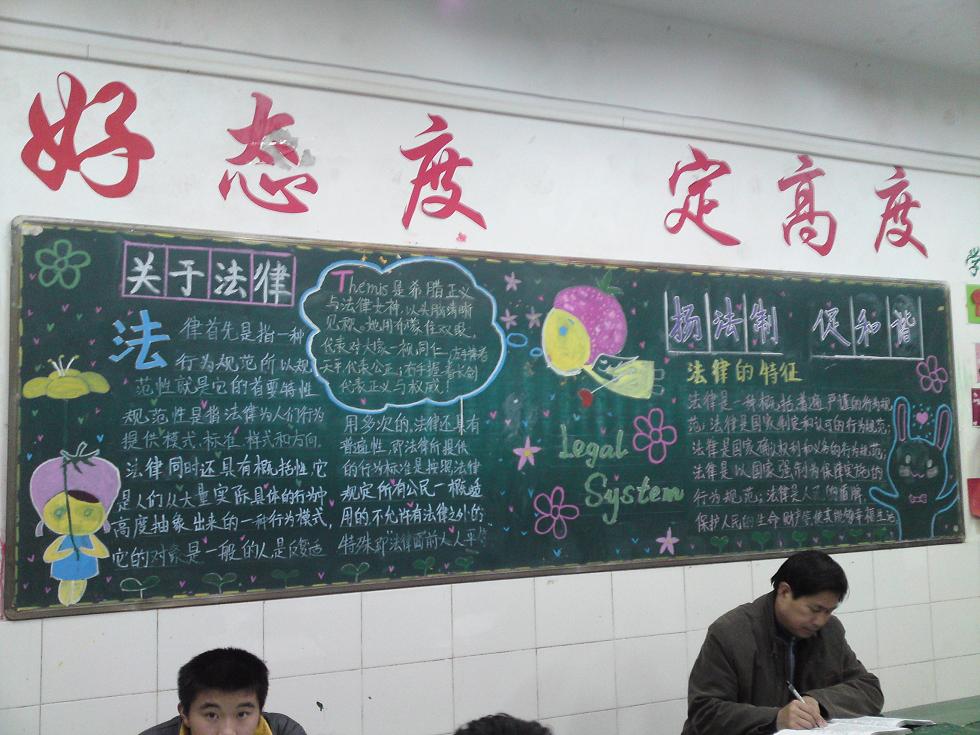 好态度 定高度
学
关于法律
法
律首先是指一种
行为规范所以规
范性就是它的首要特性
规范性是指法律为人们行为
提供模式.标准.样式和方向.
法律同时还具有概括性,它
是人们从大量实际具体的行为中
高度抽象出来的一种行为模式,
它的对象是一般的人是反复适
Themis是希腊正义
与法律女神,以头脑清晰
见称.她用布蒙住双眼,
代表对大家一视同仁,
天平代表公正,右手握着长剑
代表正义与权威!
用多次的.法律还具有
普遍性,即法律所提供
的行为标准是按照法律
规定所有公民一概适
用的不允许有法律之外的
特殊即法律面前人人平等
Legal
System
扬法制 促和谐
法律的特征
法律是一种概括普遍严谨的行为规
范;法律是国家制定和认可的行为规范;
法律是国家确认权利和义务的行为规范;
法律是以国家强制力保障实施的
行为规范;法律是人
保护人民的生命财产 使其能够幸福生活